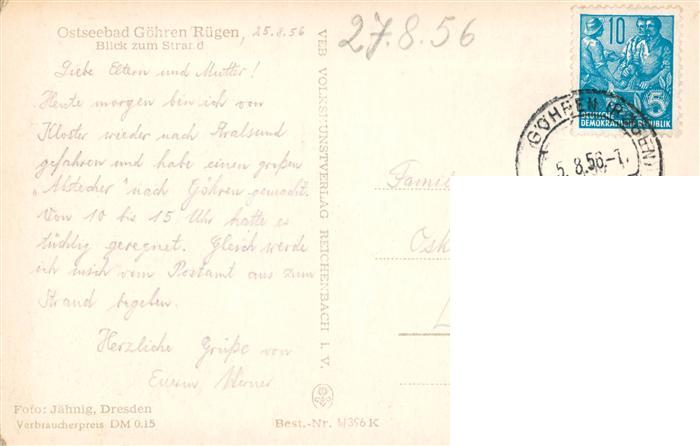 Ostseebad Göhren Rügen, 25.8.56
Blick zum Strand
Liebe Eltern und Mutter!
Heute morgen bin ich von
Kloster wieder nach Stralsund
gefahren und habe einen großen
„Abstecher" nach Göhren gemacht.
Von 10 bis 15 Uhr hatte es
tüchtig geregnet. Gleich werde
ich mich vom Postamt aus zum
Strand begeben.
Herzliche Grüße von
Eurem Werner
Foto: Jähnig, Dresden
Verbraucherpreis DM 0.15
Best.-Nr. K
VEB VOLKSKUNSTVERLAG REICHENBACH I. V.
27.8.56
10
5
DEUTSCHE
DEMOKRATISCHE REPUBLIK
GÖHREN (RÜGEN)
5.8.56.-1
Famil
Osk